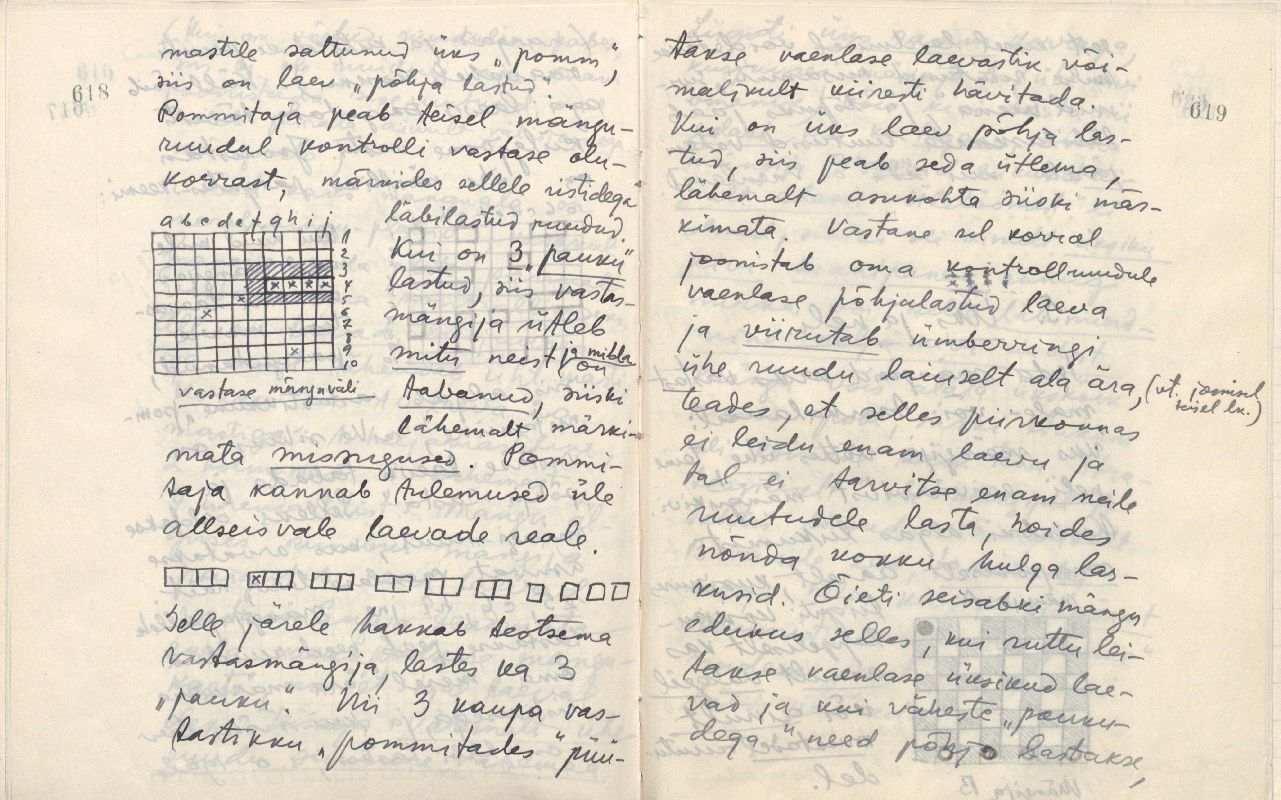 618
mastile sattunud üks „pomm”,
siis on laev „põhja lastud”.
Pommitaja peab teisel mängu-
ruudul kontrolli vastase olu-
korrast, märkides sellele ristidega
läbilastud ruudud.
a b c d e f g h i j
1
2
3
4
5
6
7
8
9
10
vastase mänguväli
Kui on 3 „pauku”
lastud, siis vastas-
mängija ütleb
mitu neist ja milla
on
tabanud, siiski
lähemalt märki-
mata missugused. Pommi-
taja kannab tulemused üle
allseisvale laevade reale.
Selle järele hakkab teotsema
vastasmängija, lastes ka 3
„pauku”. Nii 3 kaupa vas-
tastikku „pommitades” püü-
619
takse vaenlase laevastik või-
malikult kiiresti hävitada.
Kui on üks laev põhja las-
tud, siis peab seda ütlema,
lähemalt asukohta siiski mär-
kimata. Vastane sel korral
joonistab oma kontrollruudule
vaenlase põhjalastud laeva
ja viirutab ümberringi
ühe ruudu laiuselt ala ära, (vt. joonisel
teisel lk.)
teades, et selles piirkonnas
ei leidu enam laevu ja
tal ei tarvitse enam neile
ruutudele lasta, hoides
nõnda kokku hulga las-
kusid. Õieti seisabki mängu
edukus selles, kui ruttu lei-
takse vaenlase üksikud lae-
vad ja kui väheste „pauku-
dega” need põhja lastakse,